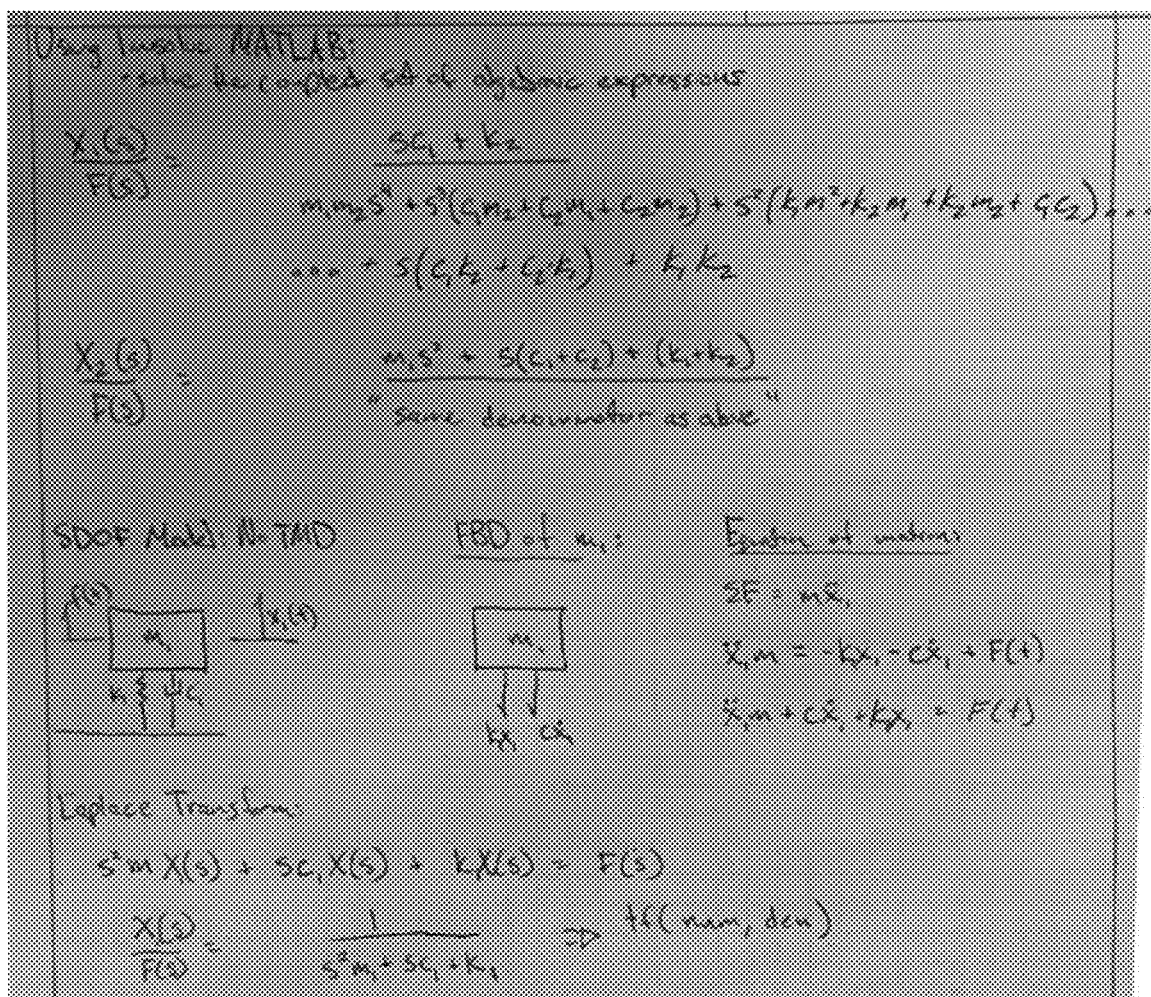 Using MATLAB:
- solve the coupled set of algebraic expressions
X₁(s)/F(s) = (sc₂ + k₂) /
m₁m₂s⁴ + s³(c₁m₂ + c₂m₁ + c₂m₂) + s²(k₁m² + k₂m₁ + k₂m₂ + c₁c₂) ...
... + s(c₁k₂ + c₂k₁) + k₁k₂
X₂(s)/F(s) = (m₁s² + s(c₁+c₂) + (k₁+k₂)) / "same denominator as above"
SDOF Model: No TMD
FBD of m₁:
Equation of motion:
f(t) m₁ x₁(t)
k₁ c₁
m₁
kx₁ cẋ₁
ΣF = mẍ₁
ẍ₁m = -kx₁ - cẋ₁ + F(t)
ẍ₁m + cẋ₁ + kx₁ = F(t)
Laplace Transform:
s²m X(s) + sc₁X(s) + k₁X(s) = F(s)
X(s)/F(s) = 1/(s²m₁ + sc₁ + k₁) ⇒ tf(num, den)